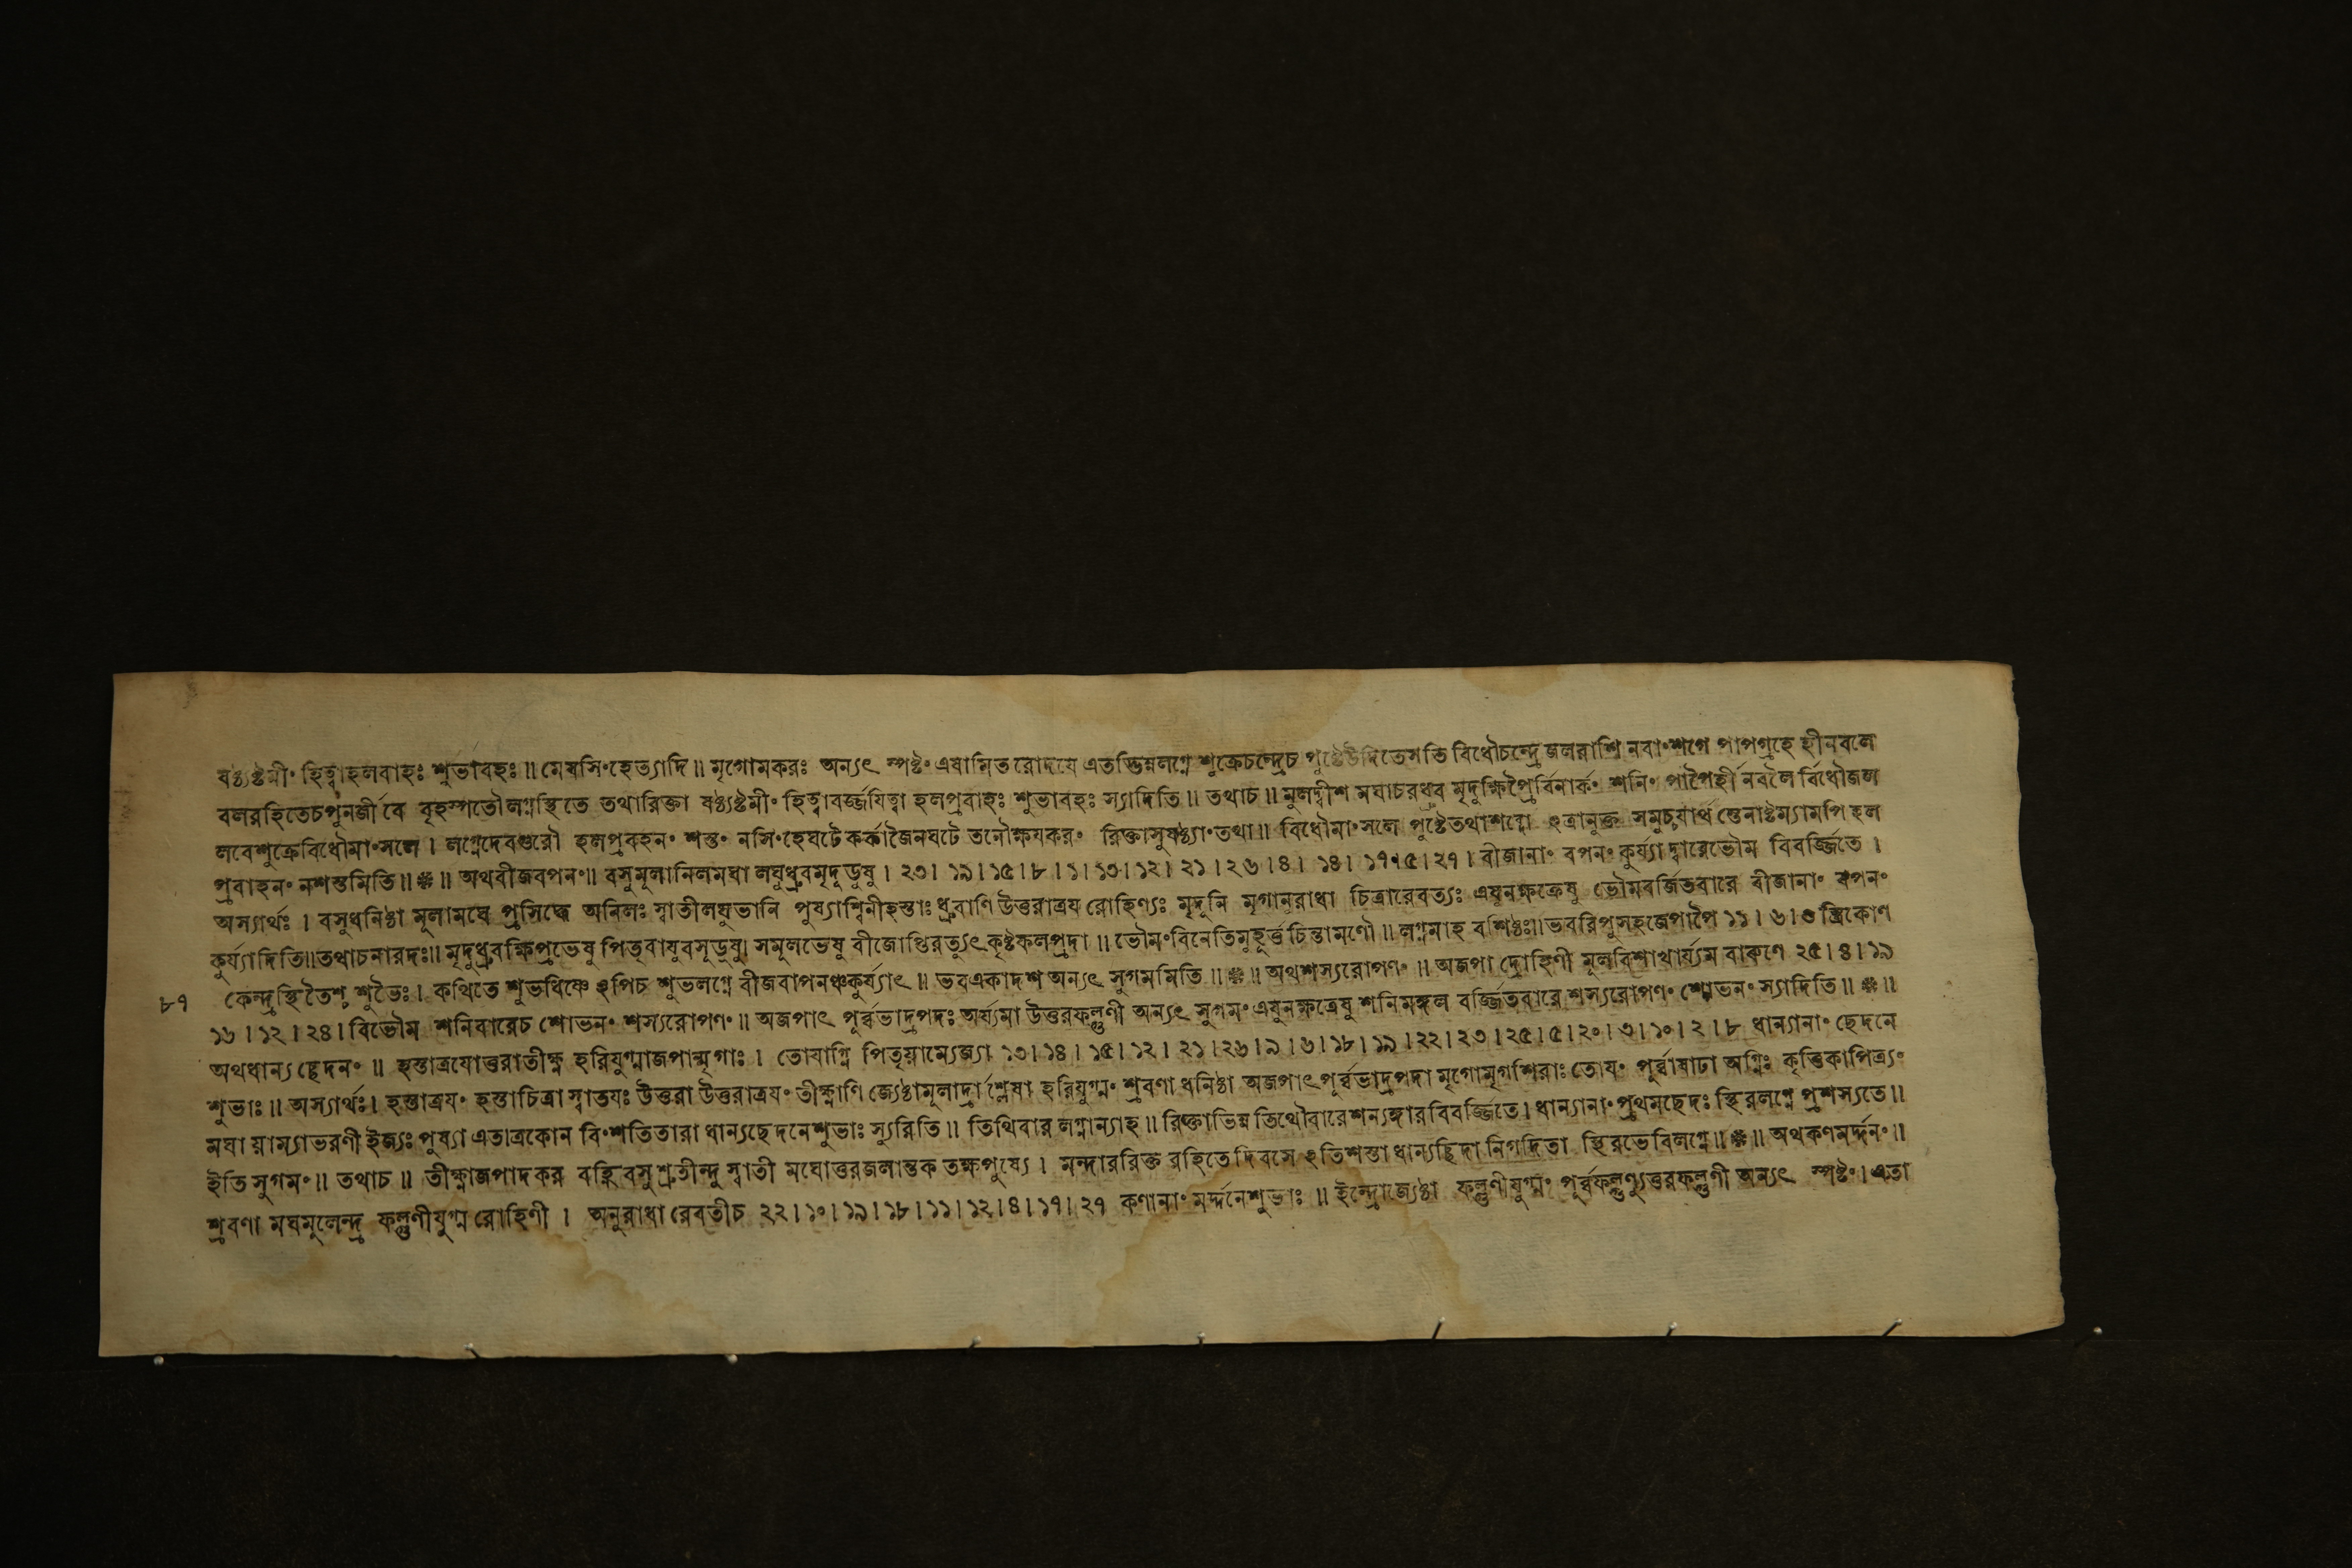 ষষ্ঠ্যষ্টমীং হিত্বাহলবাহঃ শুভাবহঃ॥ মেষসিংহেত্যাদি॥ মৃগোমকরঃ অন্যৎ স্পষ্টং এষামিতরোদযে এতদ্ভিন্নলগ্নে শুক্রেচন্দ্রেচ পুষ্টেউদিতেসতি বিধৌচন্দ্রে জলরাশি নবাংশগে পাপগ্রহে হীনবলে
বলরহিতেচপুনর্জীবে বৃহস্পতৌলগ্নস্থিতে তথারিক্তা ষষ্ঠ্যষ্টমীং হিত্বাবর্জ্জযিত্বা হলপ্রবাহঃ শুভাবহঃ স্যাদিতি॥ তথাচ॥ মুলদ্বীশ মঘাচরধ্রুব মৃদুক্ষিপ্রৈর্বিনার্কং শনিং পাপৈর্হীনবলৈ র্বিধৌজল
লবেশুক্রেবিধৌমাংসলে। লগ্নেদেবগুরৌ হলপ্রবহনং শস্তং নসিংহেঘটে কর্কাজৈনঘটে তনৌক্ষযকরং রিক্তাসুষষ্ঠ্যাংতথা॥ বিধৌমাংসলে পুষ্টেতথাশব্দো ঽত্রানুক্ত সমুচ্চযার্থ স্তেনাষ্টম্যামপি হল
প্রবাহনং নশস্তমিতি॥❈॥ অথবীজবপনং॥ বসুমুলানিলমঘা লঘুধ্রুবমৃদূডুষু। ২৩। ১৯। ১৫। ৮। ১। ১৩। ১২। ২১। ২৬। ৪। ১৪। ১৭। ৫। ২৭। বীজানাং বপনং কুর্য্যাদ্বারেভৌম বিবর্জ্জিতে।
অস্যার্থঃ। বসুধনিষ্ঠা মূলামঘে প্রসিদ্ধে অনিলঃ স্বাতীলঘুভানি পুষ্যাশ্বিনীহস্তাঃ ধ্রুবাণি উত্তরাত্রয রোহিণ্যঃ মৃদুনি মৃগানুরাধা চিত্রারেবত্যঃ এষুনক্ষত্রেষু ভৌমবর্জিতবারে বীজানাং বপনং
কুর্য্যাদিতি॥তথাচনারদঃ॥ মৃদুধ্রুবক্ষিপ্রভেষু পিতৃবাযুবসূডুষু। সমূলভেষু বীজোপ্তিরত্যুৎকৃষ্টফলপ্রদা॥ ভৌমংবিনেতিমুহূর্ত্তচিন্তামণৌ॥ লগ্নমাহ বশিষ্ঠঃ॥ভবরিপুসহজেপাপৈ ১১। ৬। ৩ স্ত্রিকোণ
৮৭ কেন্দ্রস্থিতৈশ্চ শুভৈঃ। কথিতে শুভধিষ্ণে ঽপিচ শুভলগ্নে বীজবাপনঞ্চকুর্য্যাৎ॥ ভবএকাদশ অন্যৎ সুগমমিতি॥❈॥ অথশস্যরোপণং॥ অজপা দ্রোহিণী মূলবিশাখার্য্যম বারুণে ২৫। ৪। ১৯
১৬। ১২। ২৪। বিভৌম শনিবারেচ শোভনং শস্যরোপণং॥ অজপাৎ পূর্ব্বভাদ্রপদঃ অর্য্যমা উত্তরফল্গুণী অন্যৎ সুগমং এষুনক্ষত্রেষু শনিমঙ্গল বর্জ্জিতবারে শস্যরোপণং শোভনং স্যাদিতি॥❈॥
অথধান্যছেদনং॥ হস্তাত্রযোত্তরাতীক্ষ্ণ হরিযুগ্মাজপান্মৃগাঃ। তোযাগ্নি পিতৃয়াম্যেজ্যা ১৩। ১৪। ১৫। ১২। ২১। ২৬। ৯। ৬। ১৮। ১৯। ২২। ২৩। ২৫। ৫। ২০। ৩। ১০। ২। ৮ ধান্যানাং ছেদনে
শুভাঃ॥ অস্যার্থঃ। হস্তাত্রযং হস্তাচিত্রা স্বাতযঃ উত্তরা উত্তরাত্রযং তীক্ষ্ণাণি জ্যেষ্ঠামুলার্দ্রাশ্লেষা হরিযুগ্মং শ্রবণা ধনিষ্ঠা অজপাৎ পূর্ব্বভাদ্রপদা মৃগোমৃগশিরাঃ তোযং পূর্ব্বাষাঢা অগ্নিঃ কৃত্তিকাপিত্র্যং
মঘা য়াম্যাভরণী ইজ্যঃ পুষ্যা এতাত্রকোন বিংশতিতারা ধান্যছেদনেশুভাঃ স্যুরিতি॥ তিথিবার লগ্নান্যাহ॥ রিক্তাভিন্ন তিথৌবারেশন্যঙ্গারবিবর্জ্জিতে। ধান্যানাং প্রথমছেদঃ স্থিরলগ্নে প্রশস্যতে॥
ইতি সুগমং॥ তথাচ॥ তীক্ষ্ণাজপাদকর বহ্নিবসু শ্রুতীন্দু স্বাতী মঘোত্তরজলান্তক তক্ষপুষ্যে। মন্দাররিক্ত রহিতেদিবসে ঽতিশস্তা ধান্যছিদা নিগদিতা স্থিরভেবিলগ্নে॥❈॥ অথকণমর্দ্দনং॥
শ্রবণা মঘমুলেন্দ্র ফল্গুণীযুগ্ম রোহিণী। অনুরাধা রেবতীচ ২২। ১০। ১৯। ১৮। ১১। ১২। ৪। ১৭। ২৭ কণানাং মর্দ্দনেশুভাঃ॥ ইন্দ্রোজ্যেষ্ঠা ফল্গুণীযুগ্মং পূর্ব্বফল্গুণ্যুত্তরফল্গুণী অন্যৎ স্পষ্টং। এতা